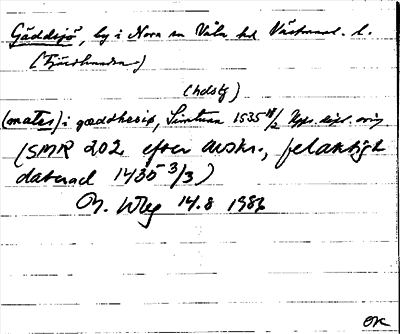 Gäddsjö, by i Nora sn Våla hd Västmanl. l.
(Fjärdhundra)
(hdstg)
(mates) i gæddhesiø, Simtuna 1535 18/2 Upps. dipl. orig
(SMR 202 efter avskr., felaktigt
daterad 1435 3/3)
M. Wbg 14.8 1986
OK